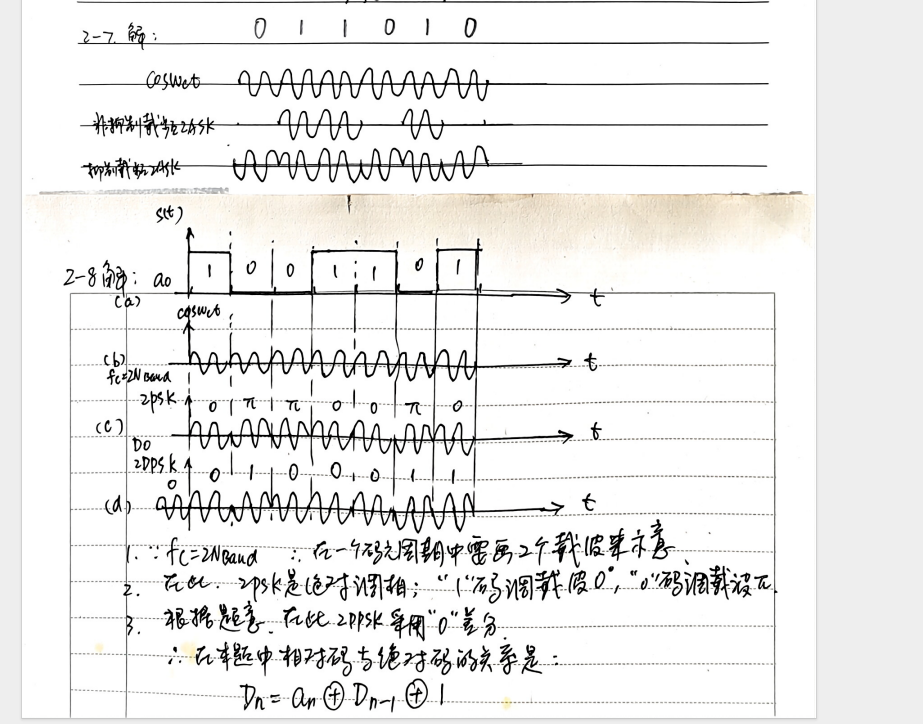 2-7. 解: 0 1 1 0 1 0
coswct
非抑制载频2ASK
抑制载频2ASK
s(t)
2-8解: a0 1 0 0 1 1 0 1
(a) t
coswct
(b) t
fc=2NBaud
2PSK 0 π π 0 0 π 0
(c) t
D0
2DPSK 0 1 0 0 0 1 1
0
(d) t
1. ∵ fc=2NBaud ∴ 在一个码元周期中要画2个载波来示意.
2. 在此. 2PSK是绝对调相; "1"码调载波0°, "0"码调载波π.
3. 根据题意. 在此2DPSK采用"0"差分
∴ 在本题中相对码与绝对码的关系是:
Dn = an ⊕ Dn-1 ⊕ 1